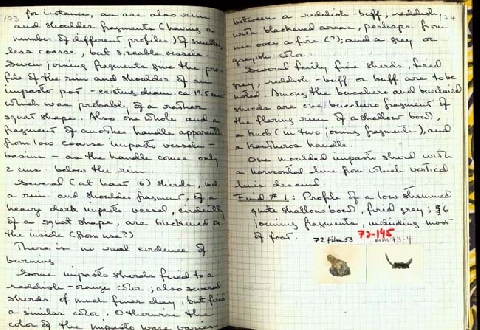 123
for instance, are also rim
and shoulder fragments (having a
number of different profiles) of smaller
less coarse, but sizable vessels
Seven joining fragments give the pro-
file of the rim and shoulder of an
impasto pot
which was probably of a rather
squat shape. Also one whole and a
fragment of another handle apparently
from low coarse impasto vessels
basins - as the handle comes only
2 cms. below the rim
Several (at least 6) sherds, incl.
a rim and shoulder fragment, of a
heavy dark impasto vessel, evidently
of a squat shape, are blackened on
the inside (from use?)
There is no usual evidence of
burning
Some impasto sherds fired to a
reddish-orange color; also several
sherds of much finer clay, but fired
a similar color. Otherwise the
color of the impasto ware varies
124
between a reddish buff, reddish
with blackened areas, perhaps from
over a fire (?); and a grey or
greyish color
Several fairly fine sherds, fired
grey - reddish - buff or buff are to be
noted. Among the bucchero and buccheroid
sherds are bucchero fragment of
the flaring rim of a shallow bowl,
a (in two joining fragments), and
a kantharos handle
One impasto sherd with
a horizontal line from which vertical
lines descend
Find #1: Profile of a low stemmed
quite shallow bowl, fired grey; 86
joining fragments, including most
of foot
72 film 53
72-195